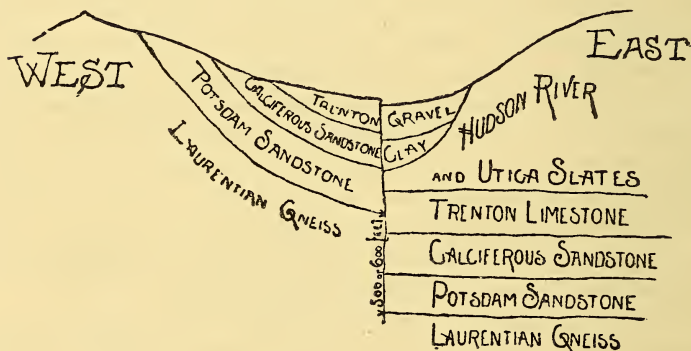 WEST
EAST
TRENTON
CALCIFEROUS SANDSTONE
POTSDAM SANDSTONE
LAURENTIAN GNEISS
GRAVEL
CLAY
HUDSON RIVER
AND UTICA SLATES
TRENTON LIMESTONE
CALCIFEROUS SANDSTONE
POTSDAM SANDSTONE
LAURENTIAN GNEISS
500 or 600 feet